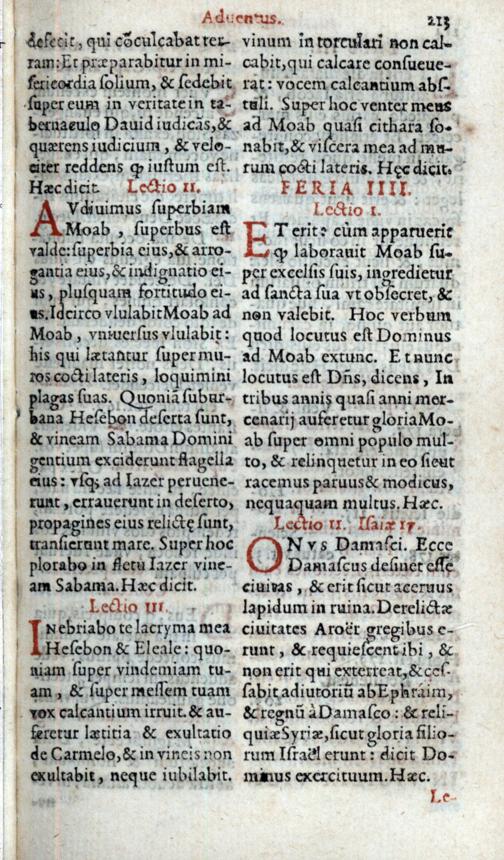 Aduentus. 213
defecit, qui cõculcabat ter-
ram: Et præparabitur in mi-
sericordia solium, & sedebit
super eum in veritate in ta-
bernaculo Dauid iudicãs, &
quærens iudicium, & velo-
citer reddens ꝙ iustum est.
Hæc dicit. Lectio II.
AVdiuimus superbiam
Moab, superbus est
valde: superbia eius, & arro-
gantia eius, & indignatio ei-
us, plusquam fortitudo ei-
us. Idcirco vlulabit Moab ad
Moab, vniuersus vlulabit:
his qui lætantur super mu-
ros cocti lateris, loquimini
plagas suas. Quoniã subur-
bana Hesebon deserta sunt,
& vineam Sabama Domini
gentium exciderunt flagella
eius: vsq; ad Iazer peruene-
runt, errauerunt in deserto,
propagines eius relictę sunt,
transierunt mare. Super hoc
plorabo in fletu Iazer vine-
am Sabama. Hæc dicit.
Lectio III.
INebriabo te lacryma mea
Hesebon & Eleale: quo-
niam super vindemiam tu-
am, & super messem tuam
vox calcantium irruit. & au-
feretur lætitia & exultatio
de Carmelo, & in vineis non
exultabit, neque iubilabit.
vinum in torculari non cal-
cabit, qui calcare consueue-
rat: vocem calcantium abs-
tuli. Super hoc venter meus
ad Moab quasi cithara so-
nabit, & viscera mea ad mu-
rum cocti lateris. Hęc dicit.
FERIA IIII.
Lectio I.
ET erit: cùm apparuerit
ꝙ laborauit Moab su-
per excelsis suis, ingredietur
ad sancta sua vt obsecret, &
non valebit. Hoc verbum
quod locutus est Dominus
ad Moab extunc. Et nunc
locutus est Dñs, dicens, In
tribus annis quasi anni mer-
cenarij auferetur gloria Mo-
ab super omni populo mul-
to, & relinquetur in eo sicut
racemus paruus & modicus,
nequaquam multus. Hæc.
Lectio II. Isaiæ 17.
ONVS Damasci. Ecce
Damascus desinet esse
ciuitas, & erit sicut aceruus
lapidum in ruina. Derelictæ
ciuitates Aroër gregibus e-
runt, & requiescent ibi, &
non erit qui exterreat, & ces-
sabit adiutoriũ ab Ephraim,
& regnũ à Damasco: & reli-
quiæ Syriæ, sicut gloria filio-
rum Israël erunt: dicit Do-
minus exercituum. Hæc.
Le-